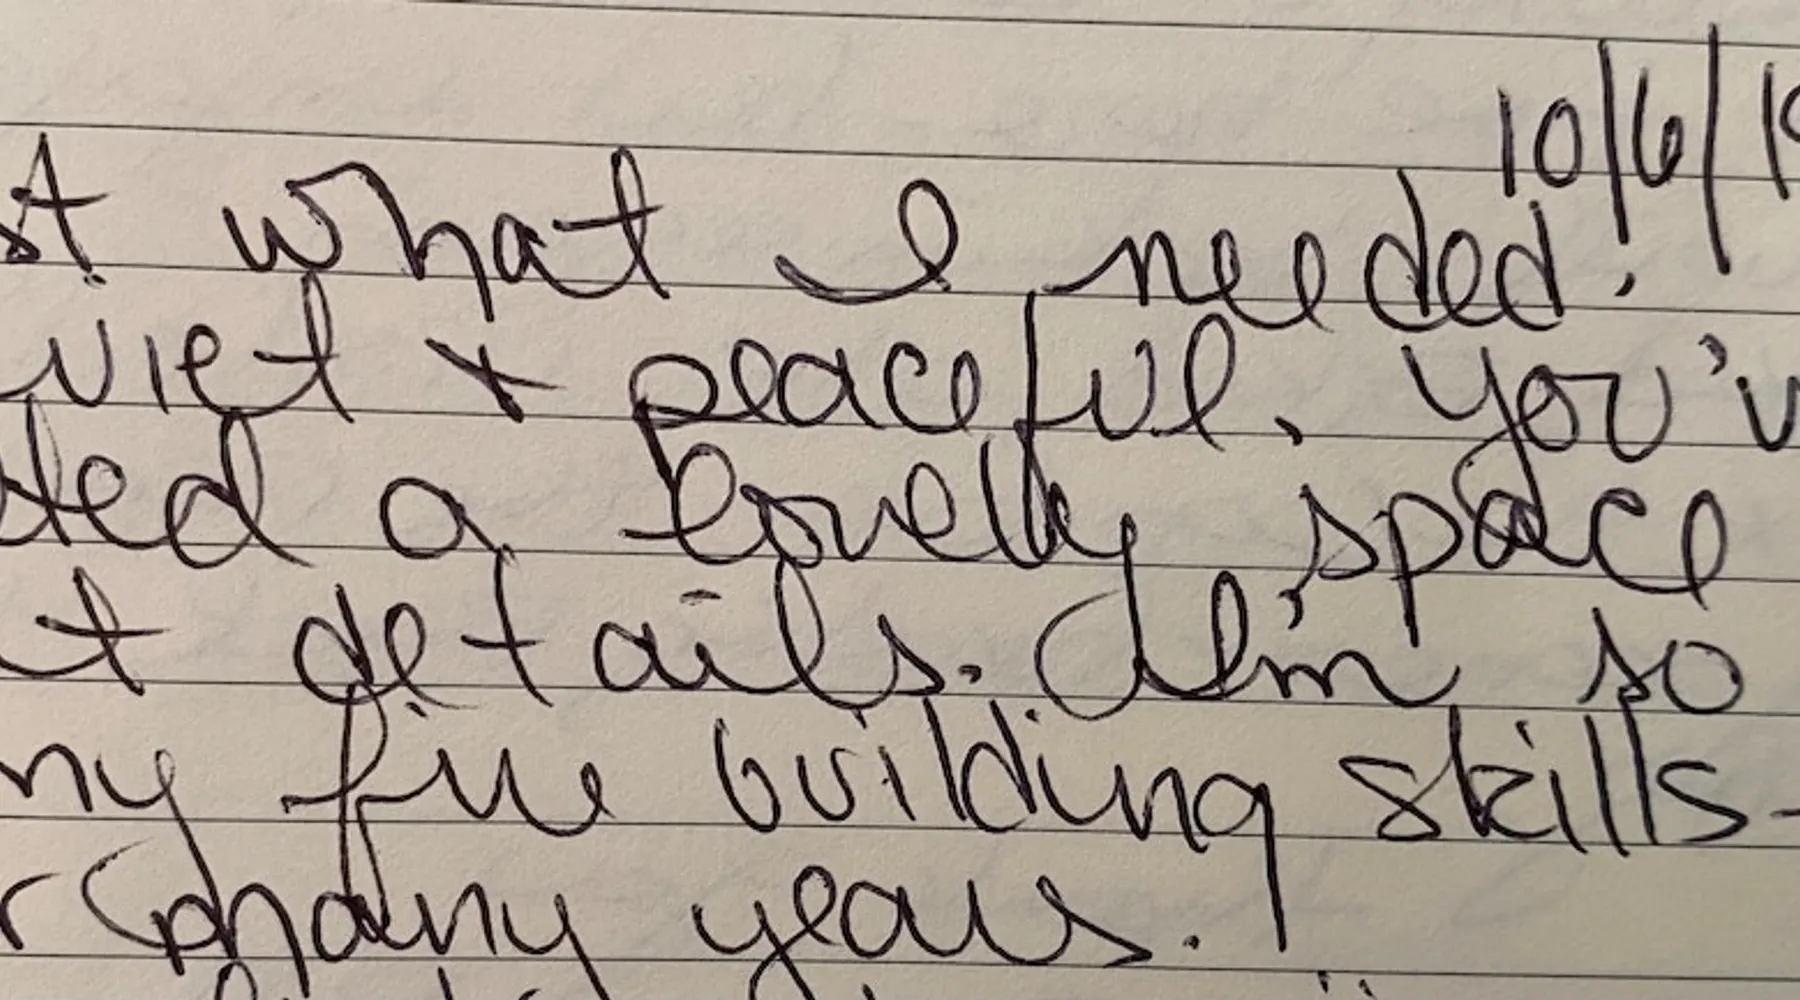 10/6/19
st what I needed!
uiet + peaceful. You'v
ted a lovely space
t details. I'm so
my fire building skills-
r many years.